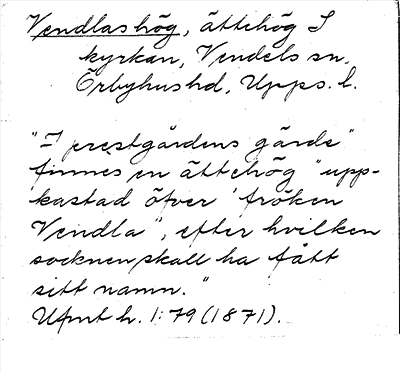 Vendlas hög, ättehög S
kyrkan, Vendels sn,
Örbyhus hd, Upps. l.
"I prestgårdens gärde
finnes en ättehög "upp-
kastad öfver 'fröken
Vendla", efter hvilken
socknen skall ha fått
sitt namn."
Ufmt h. 1:79 (1871).